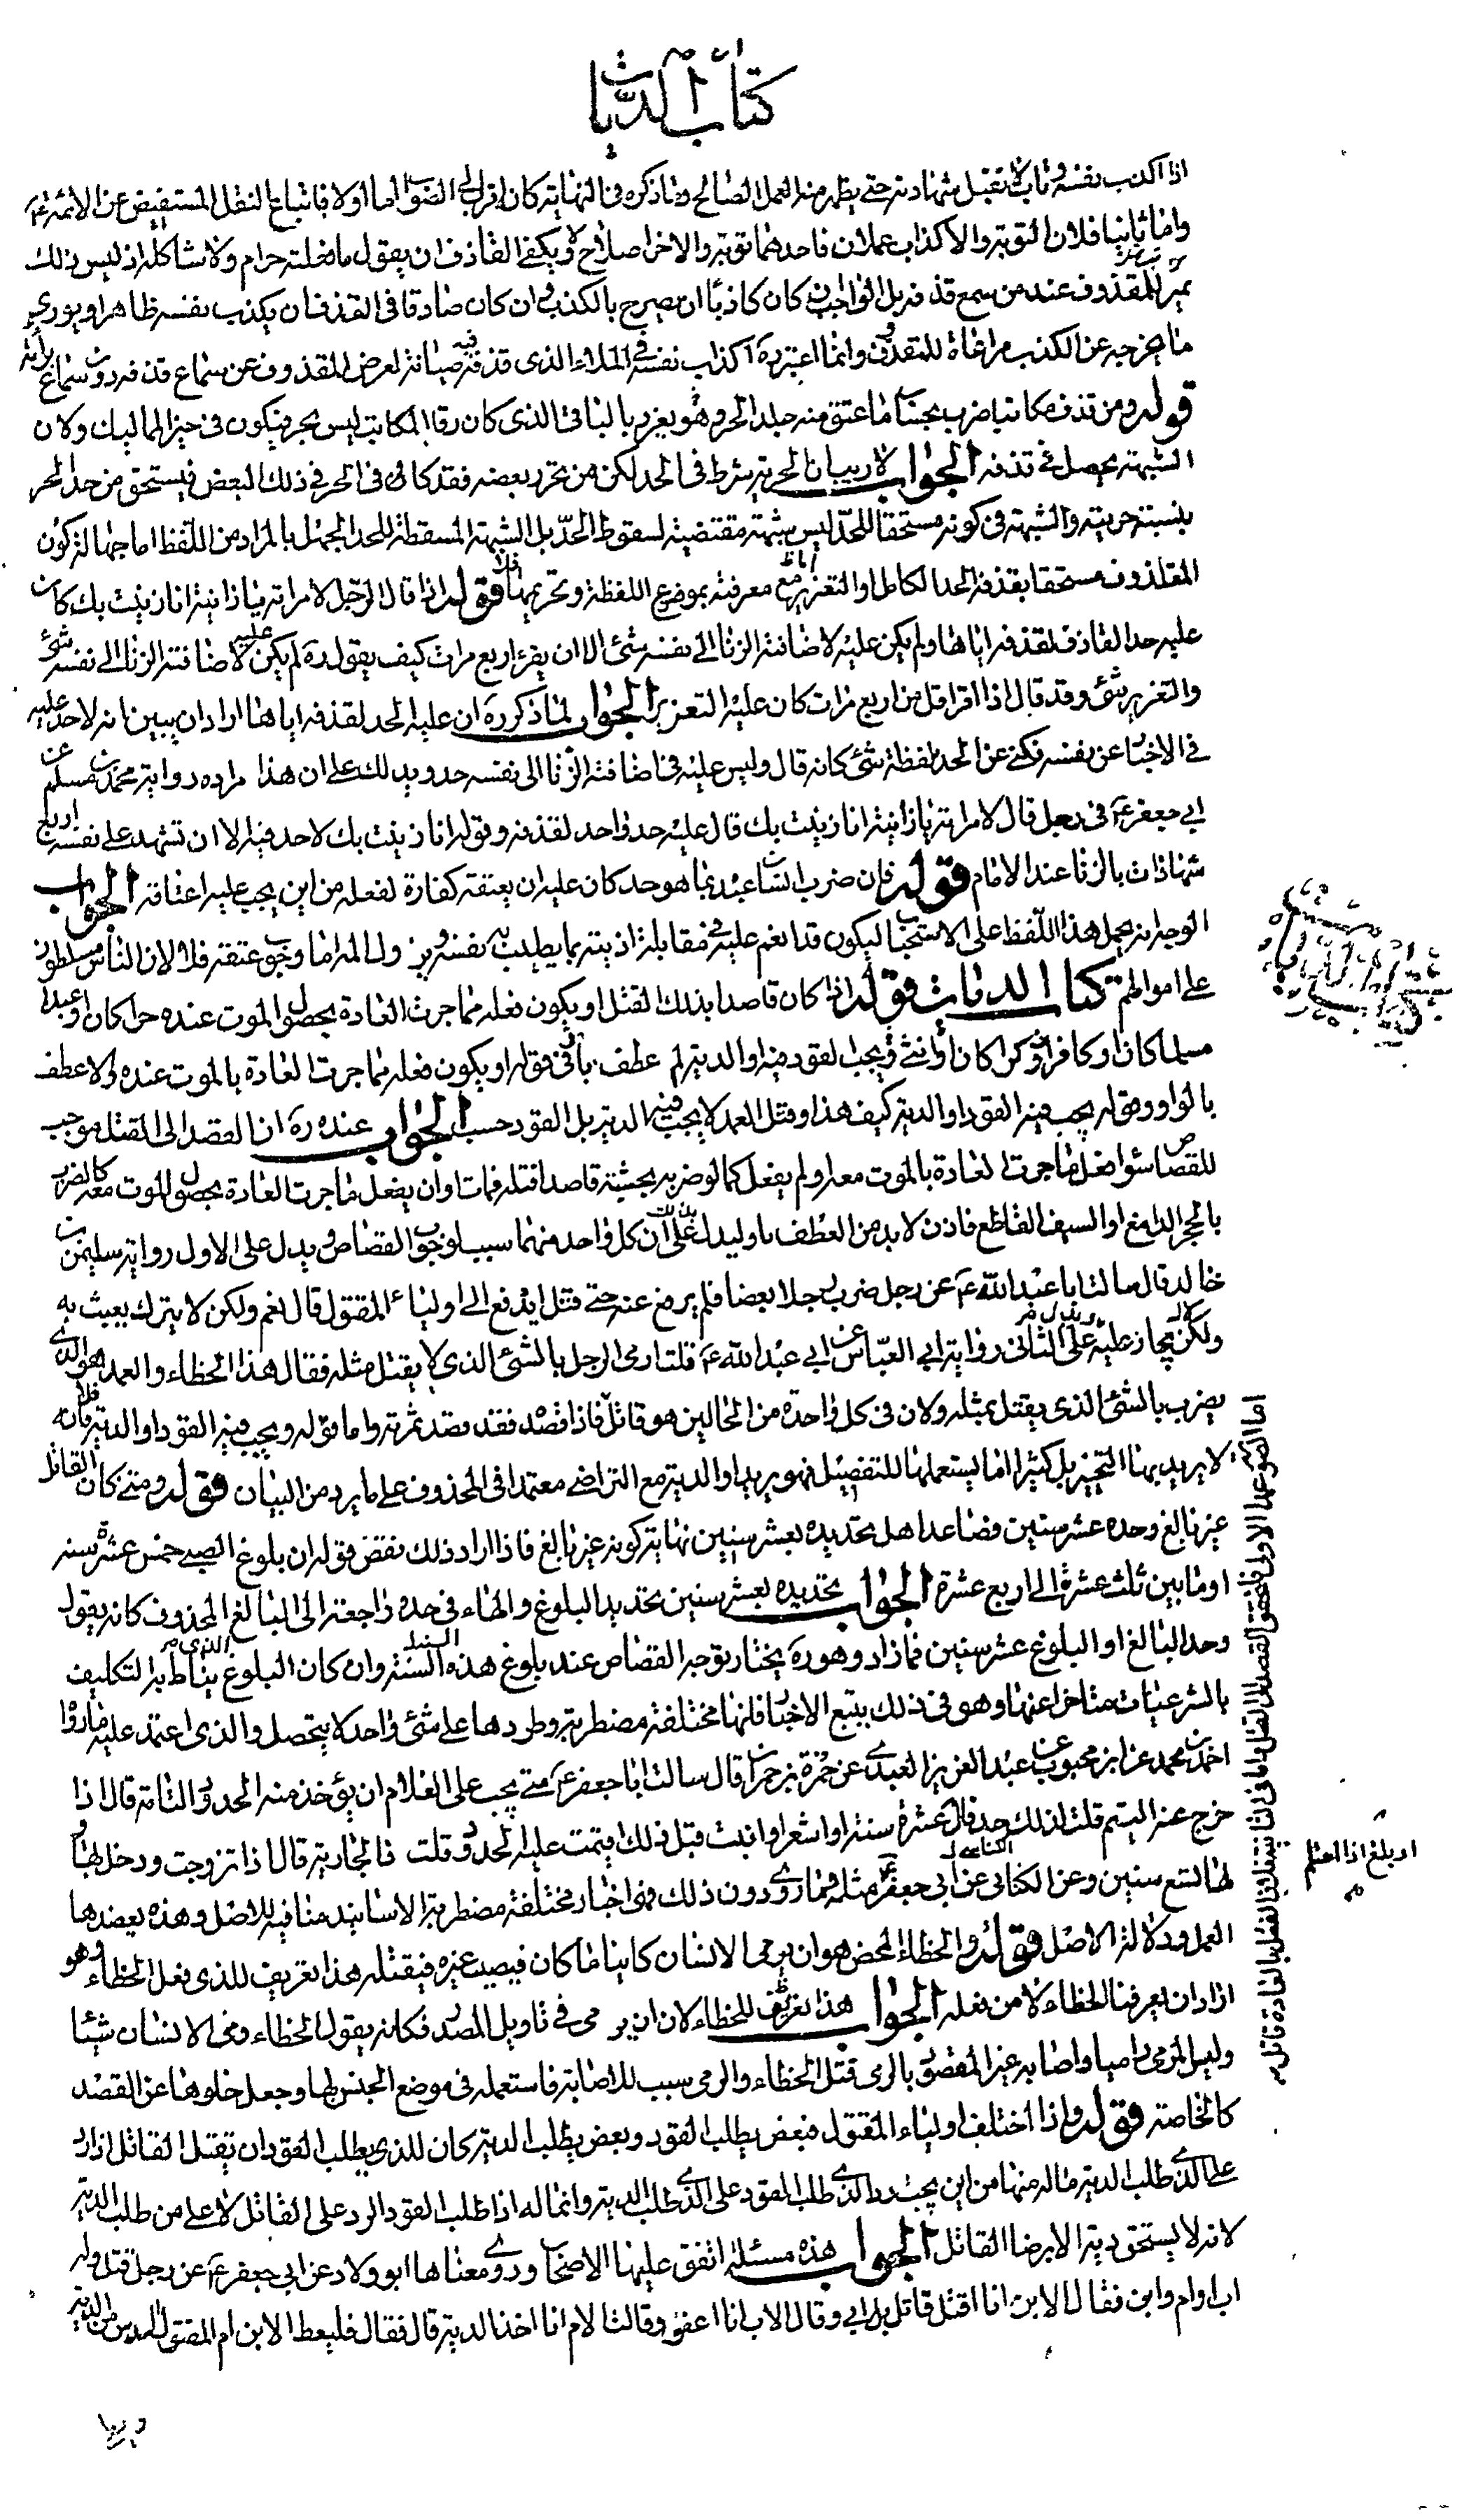 كتاب الديات
اذا اكذب نفسه وتاب لا تقبل شهادته حتى يظهر منه العمل الصالح وما ذكره فى النهاية كان اقرب الى الصواب اما اولا فاتباع النقل المستفيض عن الائمة ع
واما ثانيا فلان التوبة والاكذاب عملان فاحدهما توبة والاخر اصلاح ولا يكفى القاذف ان يقول ما فعلته حرام ولا شاكله اذ ليس ذلك
للمقذوف عند من سمع قذفه بل الواجب ان كان كاذبا ان يصرح بالكذب وان كان صادقا فى القذف ان يكذب نفسه ظاهرا ويورى
ما يخرجه عن الكذب مراعاة للمقذوف وانما اعتبر ره اكذاب نفسه فى الملاء الذى قذفه فيه صيانة لعرض المقذوف عن سماع قذفه دون سماع
قوله ومن قذف مكاتبا ضرب بحساب ما عتق منه حد الحر وهو يعزر بالباقى الذى كان رقا المكاتب ليس بحر فيكون فى حيز المماليك ولان
الشبهة يحصل فى قذفه الجواب لا ريب ان الحرية شرط فى الحد لكن من تحرر بعضه فقد كافى الحر فى ذلك البعض فيستحق من حد الحر
بنسبة حريته والشبهة فى كونه مستحقا للحد ليس بشبهة مقتضية لسقوط الحد بل الشبهة المسقطة للحد الجهل بالمراد من اللفظ اما جهالة كون
المقذوف مستحقا بقذفه الحد الكامل او التعزير مع معرفته بموضع اللفظة وتحريمها فلا قوله اذا قال الرجل لامراته يا زانية انا زنيت بك كان
عليه حد القاذف لقذفه اياها ولم يكن عليه لاضافته الزنا الى نفسه شئ الا ان يقر اربع مرات كيف يقول ره لم يكن عليه لاضافته الزنا الى نفسه شئ
والتعزير شئ وقد قال اذا اقر اقل من اربع مرات كان عليه التعزير الجواب لما ذكر ره ان عليه الحد لقذفه اياها اراد ان يبين انه لا حد عليه
فى الاخبار عن نفسه فكنى عن الحد بلفظة شئ كانه قال وليس عليه فى اضافته الزنا الى نفسه حد ويدلك على ان هذا مراده رواية محمد بن مسلم عن
ابى جعفر ع فى رجل قال لامراته يا زانية انا زنيت بك قال عليه حد واحد لقذفه وقوله انا زنيت بك لا حد فيه الا ان تشهد على نفسه اربع
شهادات بالزنا عند الامام قوله فان ضرب انسان عبده بما هو حد كان عليه ان يعتقه كفارة لفعله من اين يجب عليه اعتاقه الجواب
الوجه انه يحمل هذا اللفظ على الاستحباب ليكون قد انعم عليه فى مقابلة اذيته بما يطيب به نفسه اما وجوب عتقه فلا لان الناس مسلطون
على اموالهم كتاب الديات قوله اذا كان قاصدا بذلك القتل او يكون فعله مما جرت العادة بحصول الموت عنده حرا كان او عبدا
مسلما كان او كافرا ذكرا كان او انثى ويجب القود فيه او الدية لم عطف باو فى قوله او يكون فعله مما جرت العادة بالموت عنده ولا عطف
بالواو وقوله يجب فيه القود او الدية كيف هذا وقتل العمد لا يجب فيه الدية بل القود حسب الجواب عنده ره ان القصد الى القتل موجب
للقصاص سواء فعل ما جرت العادة بالموت معه او لم يفعل كما لو ضربه بخشبة قاصدا قتله فمات وان يفعل ما جرت العادة بحصول الموت معه كالضرب
بالحجر الدامغ او السيف القاطع فاذن لا بد من العطف باو ليدل على ان كل واحد منهما سبب لوجوب القصاص ويدل على الاول رواية سليمن بن
خالد قال سالت ابا عبد الله ع عن رجل ضرب رجلا بعصا فلم يرفع عنه حتى قتل ايدفع الى اولياء المقتول قال نعم ولكن لا يترك يعبث به
ولكن يجاز عليه على الثانى رواية ابى العباس عن ابى عبد الله ع قلت ارمى الرجل بالشئ الذى لا يقتل مثله فقال هذا الخطاء والعمد هو الذى
يضرب بالشئ الذى يقتل بمثله ولان فى كل واحدة من الحالين هو قاتل فاذا قصد فقد قصد ثمرته واما قوله ويجب فيه القود او الدية فلانه
لا يريد بهنا التخيير بل كثيرا ما يستعملها للتفصيل فهو يريد او الدية مع التراضى معتمدا فى المحذوف على ما يرد من البيان قوله ومتى كان القاتل
غير بالغ وحده عشر سنين فصاعدا هل تحديده بعشر سنين نهاية كونه غير بالغ فاذا اراد ذلك نقض قوله ان بلوغ الصبى خمس عشرة سنة
او ما بين ثلث عشرة الى اربع عشرة الجواب تحديده بعشر سنين تحديد البلوغ والهاء فى حده راجعة الى البالغ المحذوف كانه يقول
وحد البالغ او البلوغ عشر سنين فما زاد وهو ره يختار توجه القصاص عند بلوغ هذه السنة وان كان البلوغ الذى يناط به التكليف
بالشرعيات متاخرا عنها وهو فى ذلك يتبع الاخبار فانها مختلفة مضطربة وطردها على شئ واحد لا يتحصل والذى اعتمد عليه ما رواه
احمد بن محمد عن ابن محبوب عن عبد العزيز العبدى عن حمزة بن حمران قال سالت ابا جعفر ع متى يجب على الغلام ان يؤخذ منه الحدود التامة قال اذا
خرج عنه اليتم قلت لذلك حد قال خمس عشرة سنة او اشعر او انبت قبل ذلك اقيمت عليه الحدود وقلت فالجارية قال اذا تزوجت ودخل بها و
لها تسع سنين وعن الكناسى عن ابى جعفر ع مثله وما روى دون ذلك فهى اخبار مختلفة مضطربة الاسانيد منافية للاصل وهذه يعضدها
العمل ودلالة الاصل قوله والخطاء المحض هو ان يرمى الانسان كائنا ما كان فيصيب غيره فيقتله هذا تعريف للذى فعل الخطاء وهو
اراد ان يعرفنا الخطاء لا من فعله الجواب هذا تعريف للخطاء لان ان يرمى فى تاويل المصدر فكانه يقول الخطاء رمى الانسان شيئا
وليس المرمى راميا واصابه غير المقصود بالرمى قتل الخطاء والرمى سبب للاصابة فاستعمله فى موضع الجنس لها وجعل خلوها عن القصد
كالخاصة قوله واذا اختلف اولياء المقتول فبعض يطلب القود وبعض يطلب الدية كان للذى يطلب القود ان يقتل القاتل اذا رد
على الذى طلب الدية ماله منها من اين يجب رد الذى طلب القود على الذى طلب الدية وانما له اذا طلب القود الرد على القاتل لا على من طلب الدية
لانه لا يستحق دية الا برضا القاتل الجواب هذه مسئلة اتفق عليها الاصحاب وروى معناها ابو ولاد عن ابى جعفر ع عن رجل قتل وله
اب وام وابن فقال الابن انا اقتل قاتل ابى وقال الاب انا اعفو وقالت الام انا اخذ الدية قال فقال فليعط الابن ام المقتول السدس من الدية
او بلغ اذا احتلم